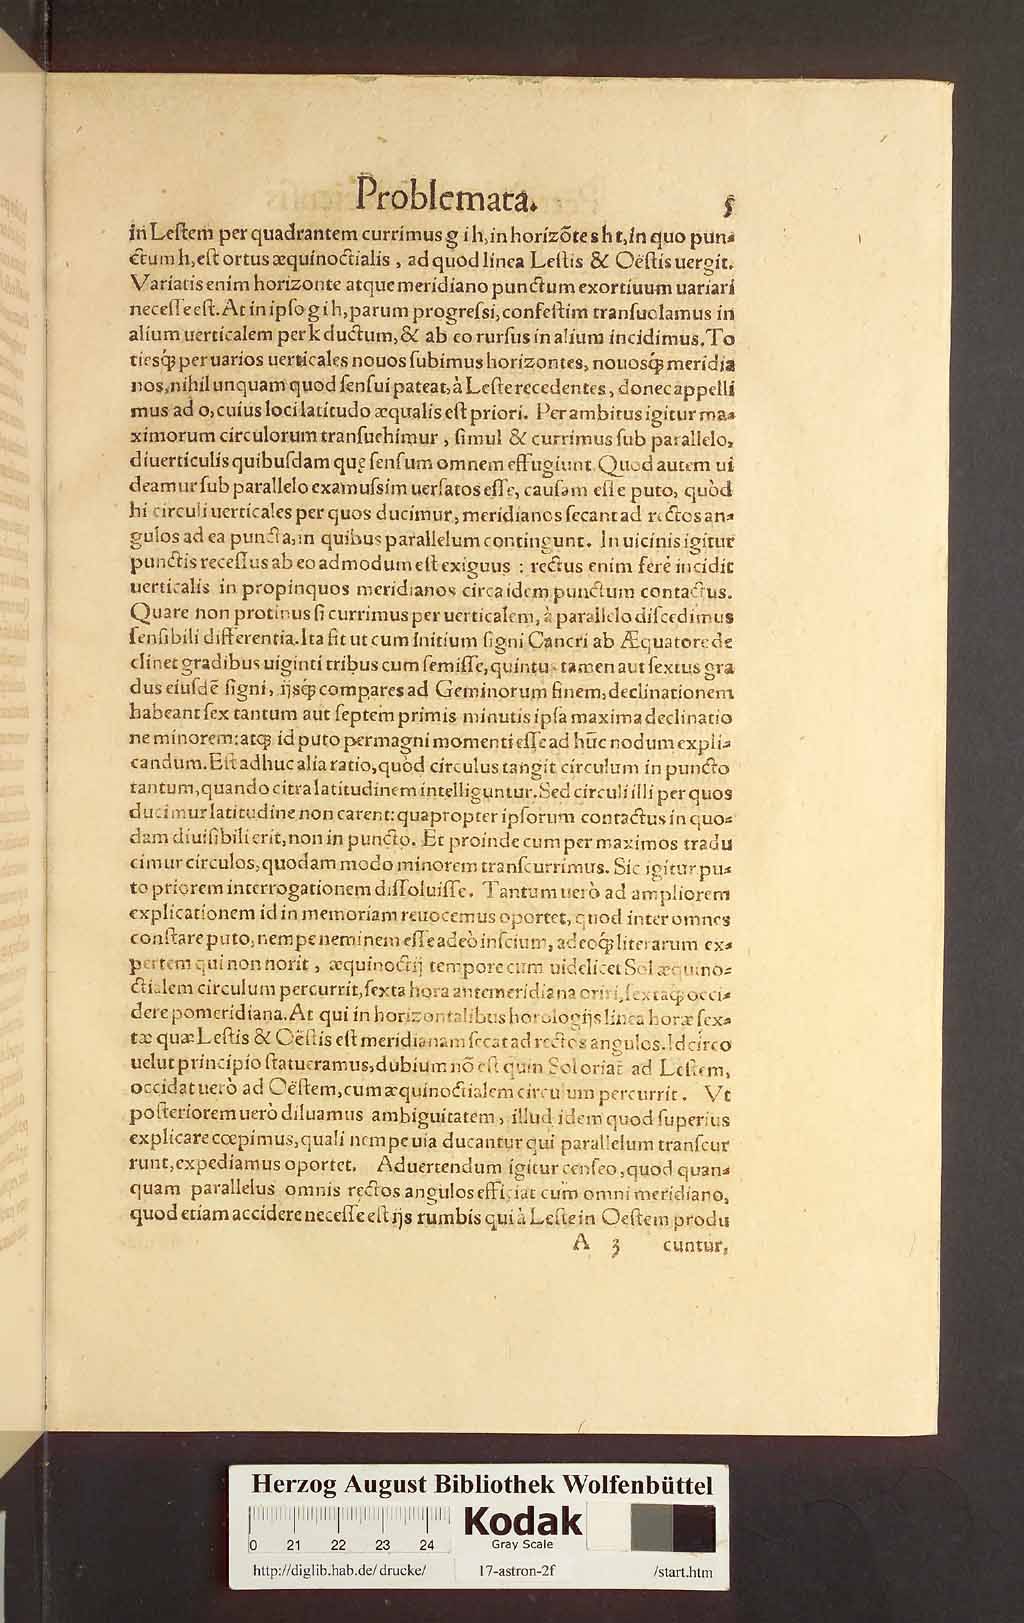 Problemata. 5
in Leſtem per quadrantem currimus g i h, in horizõte s h t, in quo pun⸗
ctum h, eſt ortus æquinoctialis, ad quod linea Leſtis & Oëſtis uergit.
Variatis enim horizonte atque meridiano punctum exortiuum uariari
neceſſe eſt. At in ipſo g i h, parum progreſsi, confeſtim tranſuolamus in
alium uerticalem per k ductum, & ab eo rurſus in alium incidimus. To
tiesq́; per uarios uerticales nouos ſubimus horizontes, nouosq́; meridia
nos, nihil unquam quod ſenſui pateat, à Leſte recedentes, donec appelli
mus ad o, cuius loci latitudo æqualis eſt priori. Per ambitus igitur ma⸗
ximorum circulorum tranſuehimur, ſimul & currimus ſub parallelo,
diuerticulis quibuſdam quę ſenſum omnem effugiunt. Quod autem ui
deamur ſub parallelo examuſsim uerſatos eſſe, cauſam eſſe puto, quòd
hi circuli uerticales per quos ducimur, meridianos ſecant ad rectos an⸗
gulos ad ea puncta, in quibus parallelum contingunt. In uicinis igitur
punctis receſſus ab eo admodum eſt exiguus : rectus enim ferè incidit
uerticalis in propinquos meridianos circa idem punctum contactus.
Quare non protinus ſi currimus per uerticalem, à parallelo diſcedimus
ſenſibili differentia. Ita fit ut cum Initium ſigni Cancri ab Æquatore de
clinet gradibus uiginti tribus cum ſemiſſe, quintus tamen aut ſextus gra
dus eiuſdẽ ſigni, ijsq́; compares ad Geminorum finem, declinationem
habeant ſex tantum aut ſeptem primis minutis ipſa maxima declinatio
ne minorem: atq; id puto permagni momenti eſſe ad hũc nodum expli⸗
candum. Eſt adhuc alia ratio, quòd circulus tangit circulum in puncto
tantum, quando citra latitudinem intelliguntur. Sed circuli illi per quos
ducimur latitudine non carent: quapropter ipſorum contactus in quo⸗
dam diuiſibili erit, non in puncto. Et proinde cum per maximos tradu
cimur circulos, quodam modo minorem tranſcurrimus. Sic igitur pu⸗
to priorem interrogationem diſſoluiſſe. Tantum uerò ad ampliorem
explicationem id in memoriam reuocemus oportet, quod inter omnes
conſtare puto, nempe neminem eſſe adeò inſcium, adeoq́; literarum ex⸗
pertem qui non norit, æquinoctij tempore cum uidelicet Sol æquino⸗
ctialem circulum percurrit, ſexta hora antemeridiana oriri, ſextaq́; occi⸗
dere pomeridiana. At qui in horizontalibus horologijs linea horæ ſex⸗
tæ quæ Leſtis & Oëſtis eſt meridianam ſecat ad rectos angulos. Idcirco
uelut principio ſtatueramus, dubium nõ eſt quin Sol oriat̃ ad Leſtem,
occidat uerò ad Oëſtem, cum æquinoctialem circulum percurrit. Vt
poſteriorem uerò diluamus ambiguitatem, illud idem quod ſuperius
explicare cœpimus, quali nempe uia ducantur qui parallelum tranſcur
runt, expediamus oportet. Aduertendum igitur cenſeo, quod quan⸗
quam parallelus omnis rectos angulos efficiat cum omni meridiano,
quod etiam accidere neceſſe eſt ijs rumbis qui à Leſte in Oeſtem produ
A 3 cuntur,
Herzog August Bibliothek Wolfenbüttel
Kodak
Gray Scale
0 21 22 23 24
http://diglib.hab.de/drucke/ 17-astron-2f /start.htm